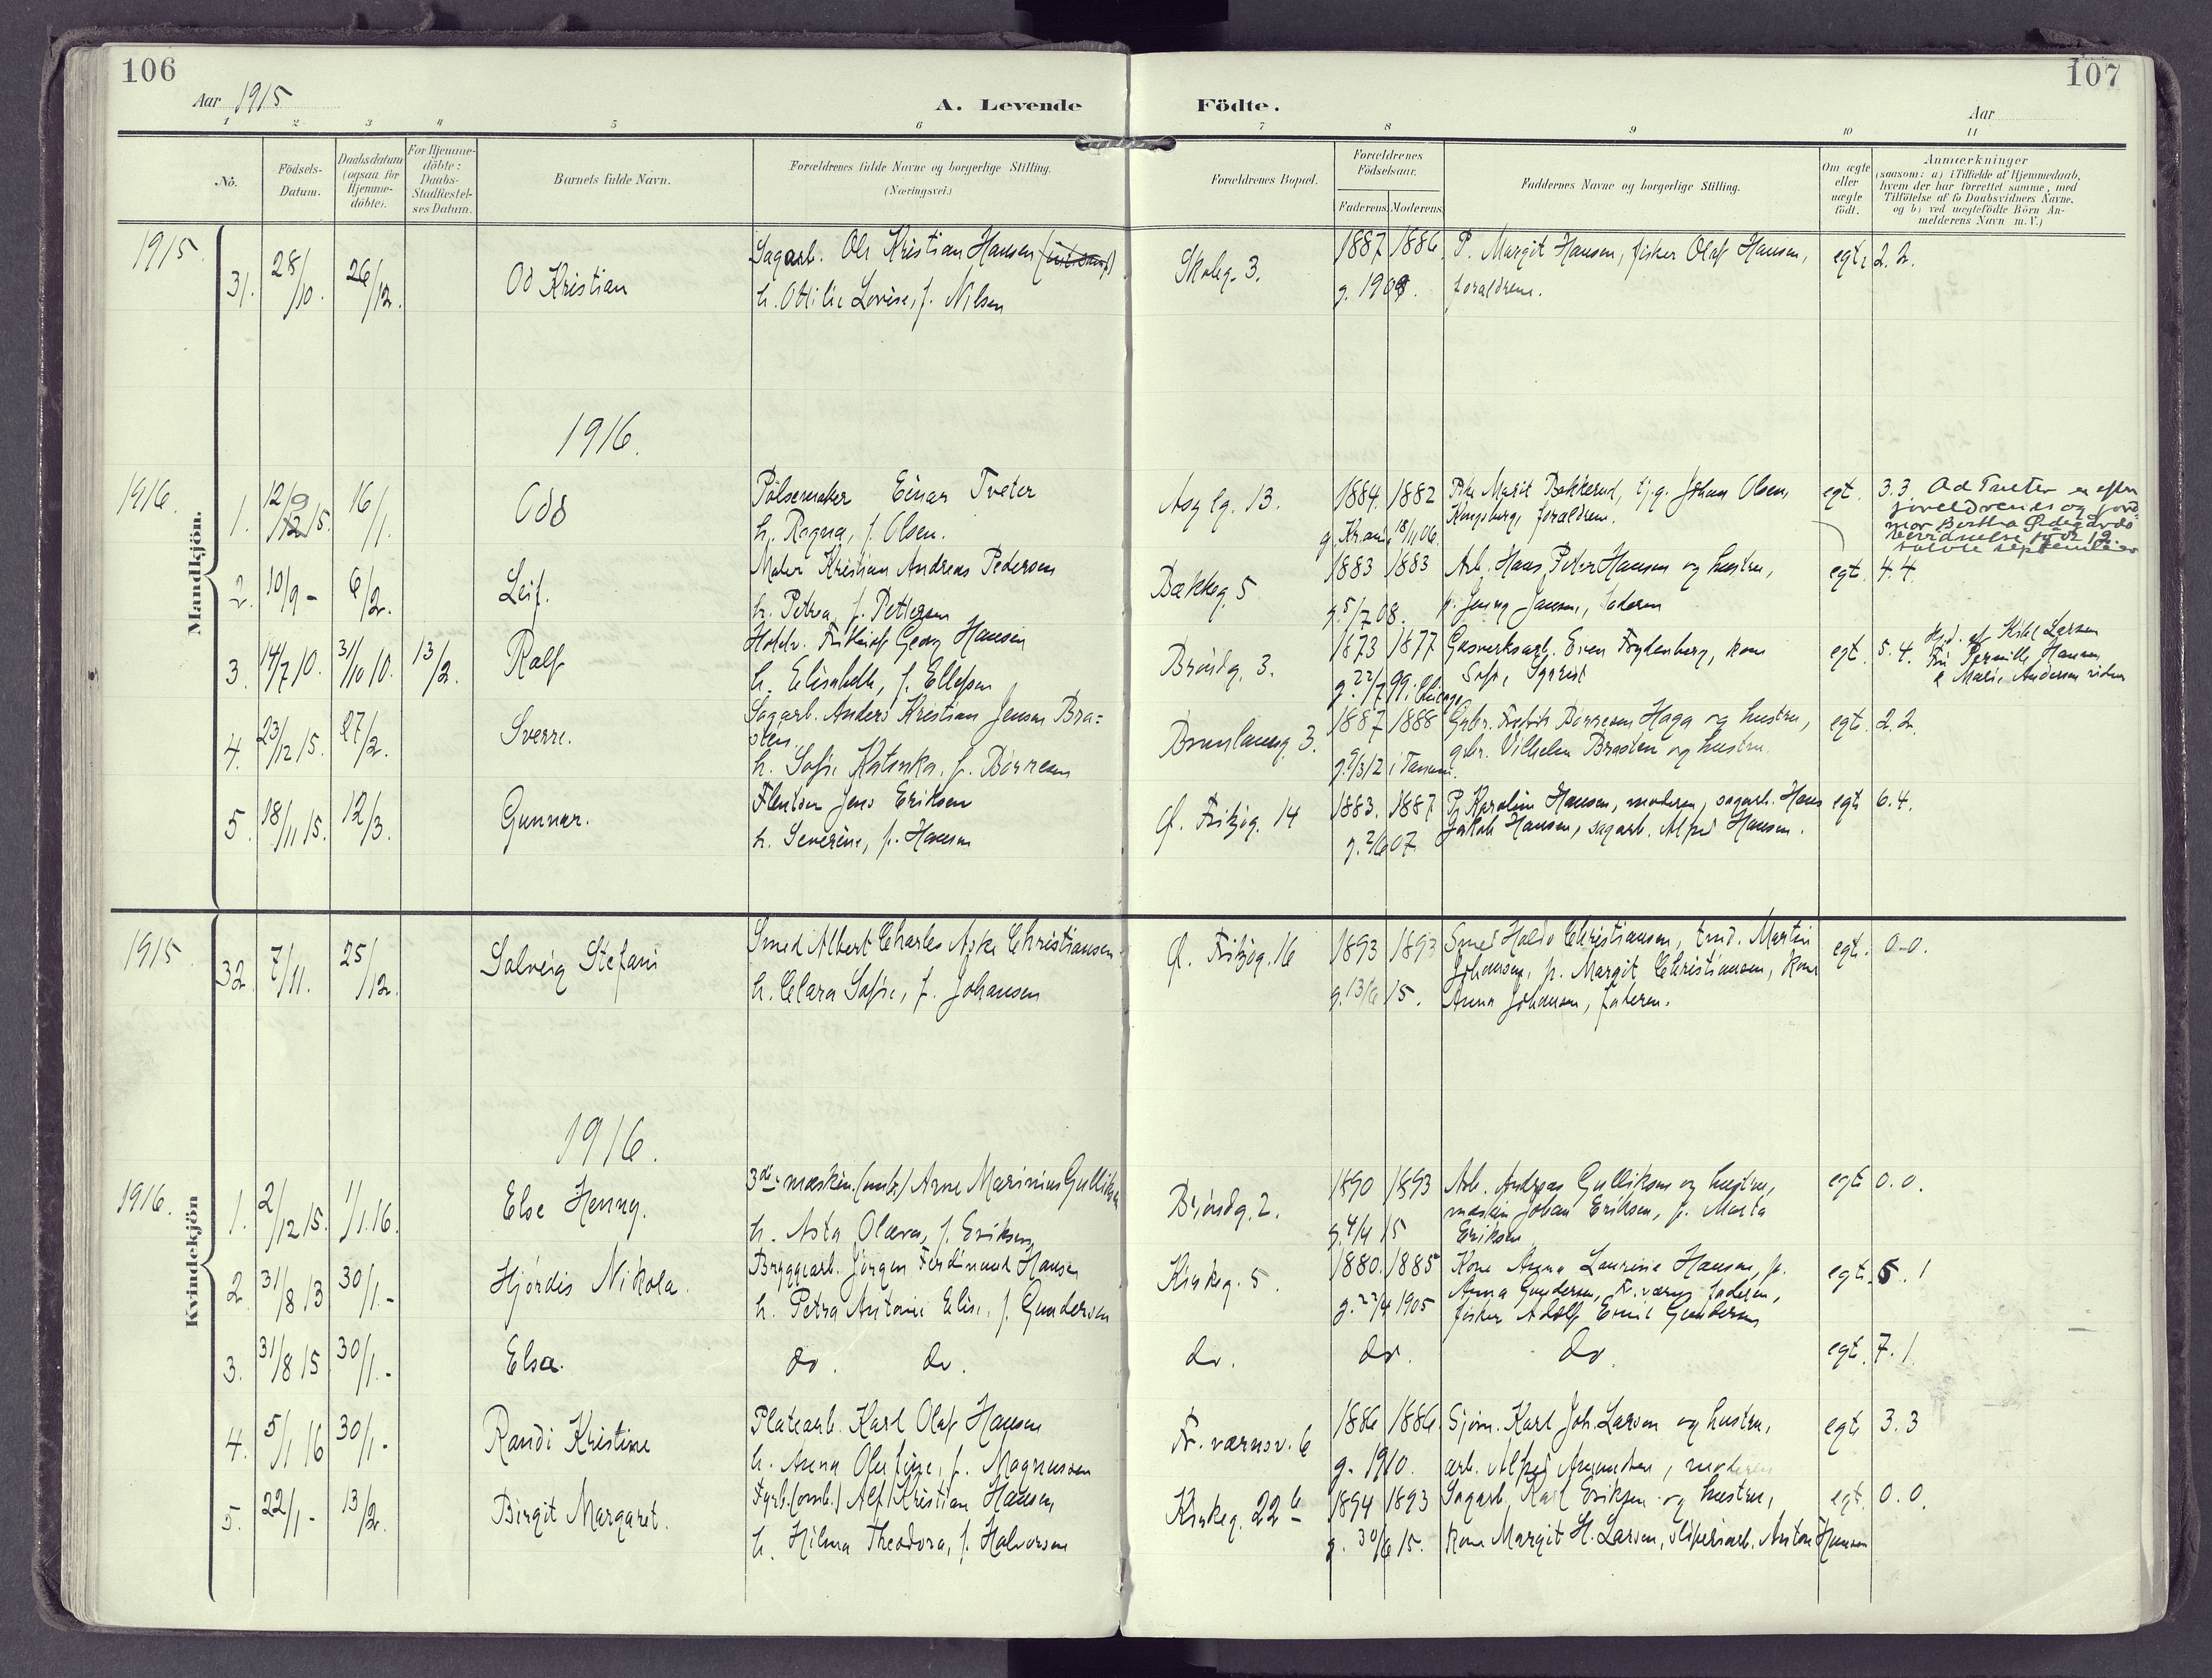 106
Aar 1915
A. Levende
Födte.
Aar
107
1 2 3 4 5 6 7 8 9 10 11
No.
Födsels-
Datum.
Daabsdatum
(ogsaa for
Hjemme-
döbte).
For Hjemme-
döbte:
Daabs-
Stadfæstel-
ses Datum.
Barnets fulde Navn.
Forældrenes fulde Navne og borgerlige Stilling.
(Næringsvei.)
Forældrenes Bopæl.
Forældrenes
Födselsaar.
Faderens Moderens
Faddernes Navne og borgerlige Stilling.
Om ægte
eller
uægte
födt.
Anmærkninger
(saasom: a) i Tilfælde af Hjemmedaab,
hvem der har forrettet samme, med
Tilföielse af to Daabsvidners Navne,
og b) ved uægtefödte Börn An-
melderens Navn m.V.)
Mandkjön.
1915
31. 28/10. 26/12. Od Kristian
Sagarb. Ole Kristian Hansen
h. Otilie Lovise, f. Nilsen
Skoleg. 3.
1887 1886
g. 1908.
P. Margit Hansen, fisker Olaf Hansen,
forældrene.
egte 2.2.
1916.
1916.
1. 12/9 15. 16/1. Odd
Pölsemaker Einar Tveter
h. Ragna, f. Olsen.
Asylg. 13.
1884. 1882
g. Kr.ania 18/11 06.
Pike Marit Bakkerud, tj.g. Johan Olsen,
Kongsberg, forældrene.
egt. 3.3. Od Tveter er efter
foreldrenes og jord
mor Bertha Ödegårds
bevidnelse født 12.
tolvte september
2. 10/9 - 6/2. Leif.
Maler Kristian Andreas Pedersen
h. Petrea, f. Pettersen
Bækkeg. 5
1883 1883
g. 5/7 08.
Arb. Hans Peter Hansen og hustru,
p. Jenny Jansen, faderen
egt. 4.4.
3. 14/7 10. 31/10 10. 13/2. Ralf
Fridtjof Georg Hansen
h. Elisabeth, f. Ellefsen
Bröndg. 3.
1873 1877
g. 22/7 99 i Chicago
Gasverksarb. Even Frydenberg, kone
Sofie Sgürist
egt. 5.4. Hjd. af Kild Larsen
Fru Pernille Hansen
& Marie Andersen vidner
4. 23/12 15. 27/2. Sverre.
Sagarb. Anders Kristian Jensen Bra=
sten.
h. Sofie Katinka, f. Börresen
Brunlanesg. 3.
1887 1888
g. 9/3 12 i Tanum.
Gbr. Fredrik Börresen Haga og hustru,
gbr. Vilhelm Brasten og hustru.
egt. 2.2.
5. 18/11 15. 12/3. Gunnar.
Jens Eriksen
h. Severine, f. Hansen
Ö. Fritzög. 14
1883. 1887
g. 2/6 07.
P. Karoline Hansen, moderen, sagarb. Hans
Jakob Hansen, sagarb. Alfred Hansen.
egt. 6.4.
Kvindekjön
1915
32. 7/11. 25/12. Solveig Stefani
Smed Albert Charles Aske Christiansen
h. Clara Sofie, f. Johansen
Ö. Fritzög. 16
1893 1893
g. 13/6 15.
Smed Haldo Christiansen, tmd. Martin
Johansen, p. Margit Christiansen, kone
Anna Johansen, faderen.
egt. 0-0.
1916.
1916.
1. 2/12 15. 1/1.16. Else Henny.
3die maskin. (umb.) Arne Marinius Gulliksen
h. Asta Olava, f. Eriksen
Bröndg. 2.
1890 1893
g. 4/4 15
Arb. Andreas Gulliksen og hustru,
maskin Johan Eriksen, p. Marta
Eriksen
egt 0.0.
2. 31/8 13 30/1.- Hjördis Nikola.
Bryggearb. Jörgen Ferdinand Hansen
h. Petra Antonie Elise, f. Gundersen
Kirkeg. 5.
1880. 1885
g. 22/4 1905
Kone Anna Laurine Hansen, p.
Anna Gundersen, Fr.værn, faderen,
fisker Adolf Emil Gundersen
egt. 6.1
3. 31/8 15 30/1.- Elsa.
do. do.
do.
do.
do.
egt. 7.1.
4. 5/1 16 30/1.- Randi Kristine
Platearb. Karl Olaf Hansen
h. Anna Olufine, f. Magnussen
Fr. værnsv. 6
1886 1886
g. 1910.
Sjöm. Karl Joh. Larsen og hustru,
arb. Alfred Amundsen, moderen
egt. 3.3
5. 22/1 - 13/2. Birgit Margaret.
Fyrb. (omb.) Alf Kristian Hansen
h. Hilma Theodora, f. Halvorsen
Kirkeg. 22 b
1894 1893
g. 30/6 15.
Sagarb. Karl Eriksen og hustru,
kone Margit H. Larsen, sliperiarb. Anton Hansen
egt. 0.0.